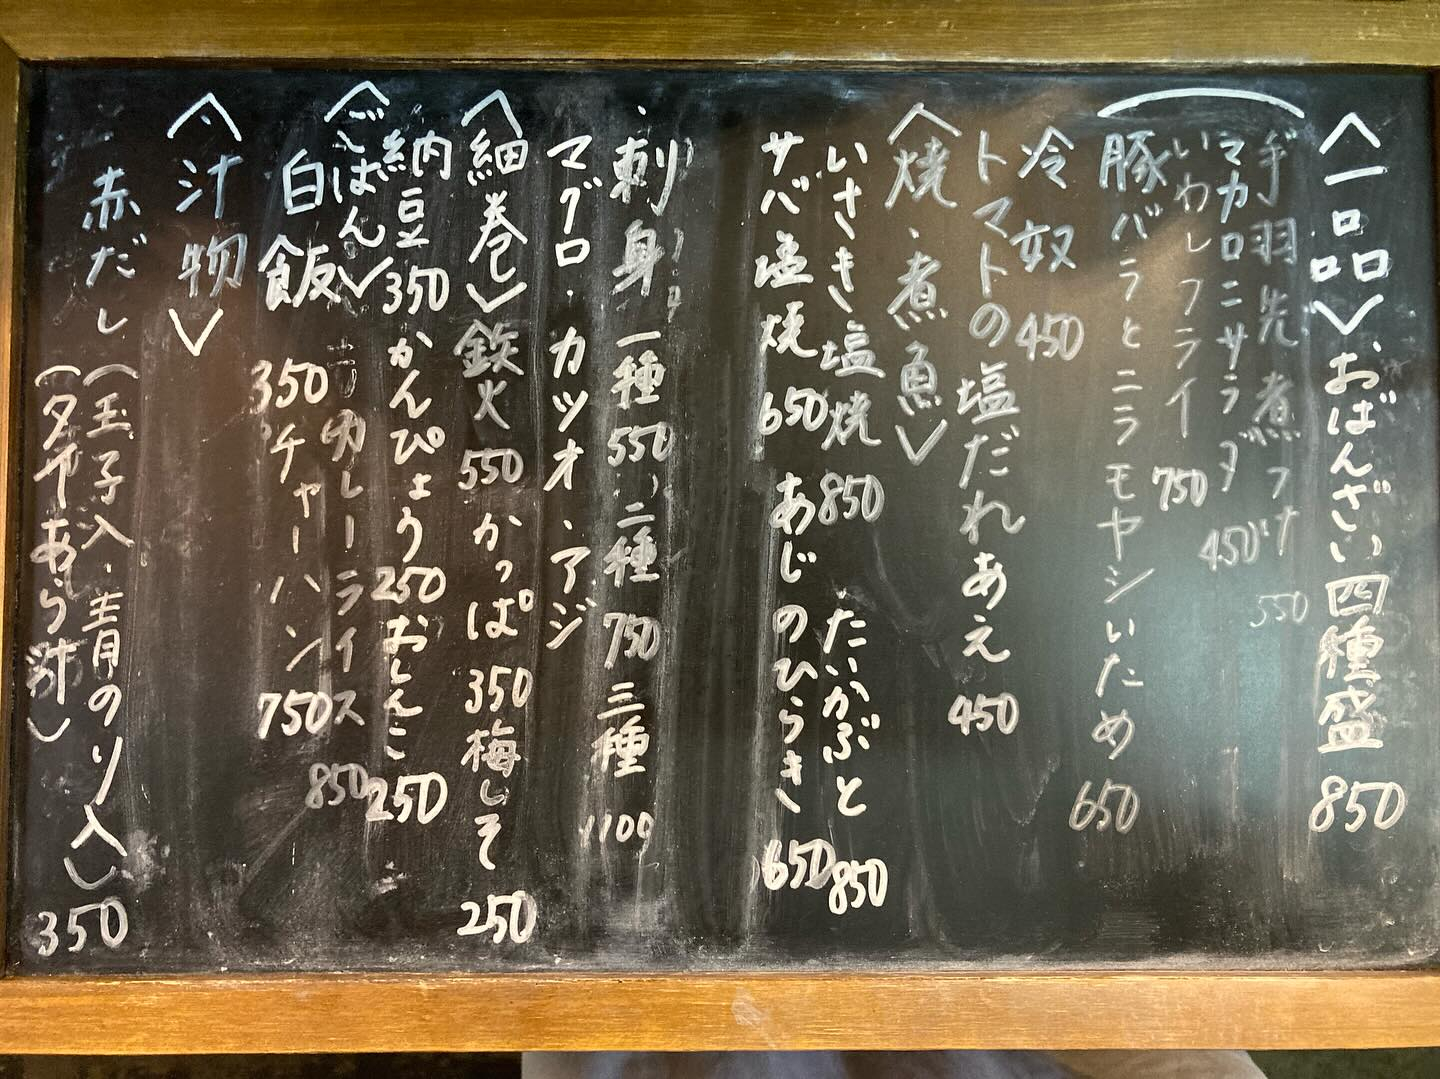 〈一品〉おばんざい四種盛 850
手羽先煮つけ 550
マカロニサラダ 450
いわしフライ 750
豚バラとニラモヤシいため 650
冷奴 450
トマトの塩だれあえ 450
〈焼・煮魚〉
いさき塩焼 850 たいかぶと 850
サバ塩焼 650 あじのひらき 650
・刺身 一種 550 二種 750 三種 1100
マグロ・カツオ・アジ
〈細巻〉鉄火 550 かっぱ 350 梅しそ 250
納豆 350 かんぴょう 250 おしんこ 250
〈ごはん〉 カレーライス 850
白飯 350 チャーハン 750
〈汁物〉
赤だし(玉子入・青のり入)
(タイあら汁) 350